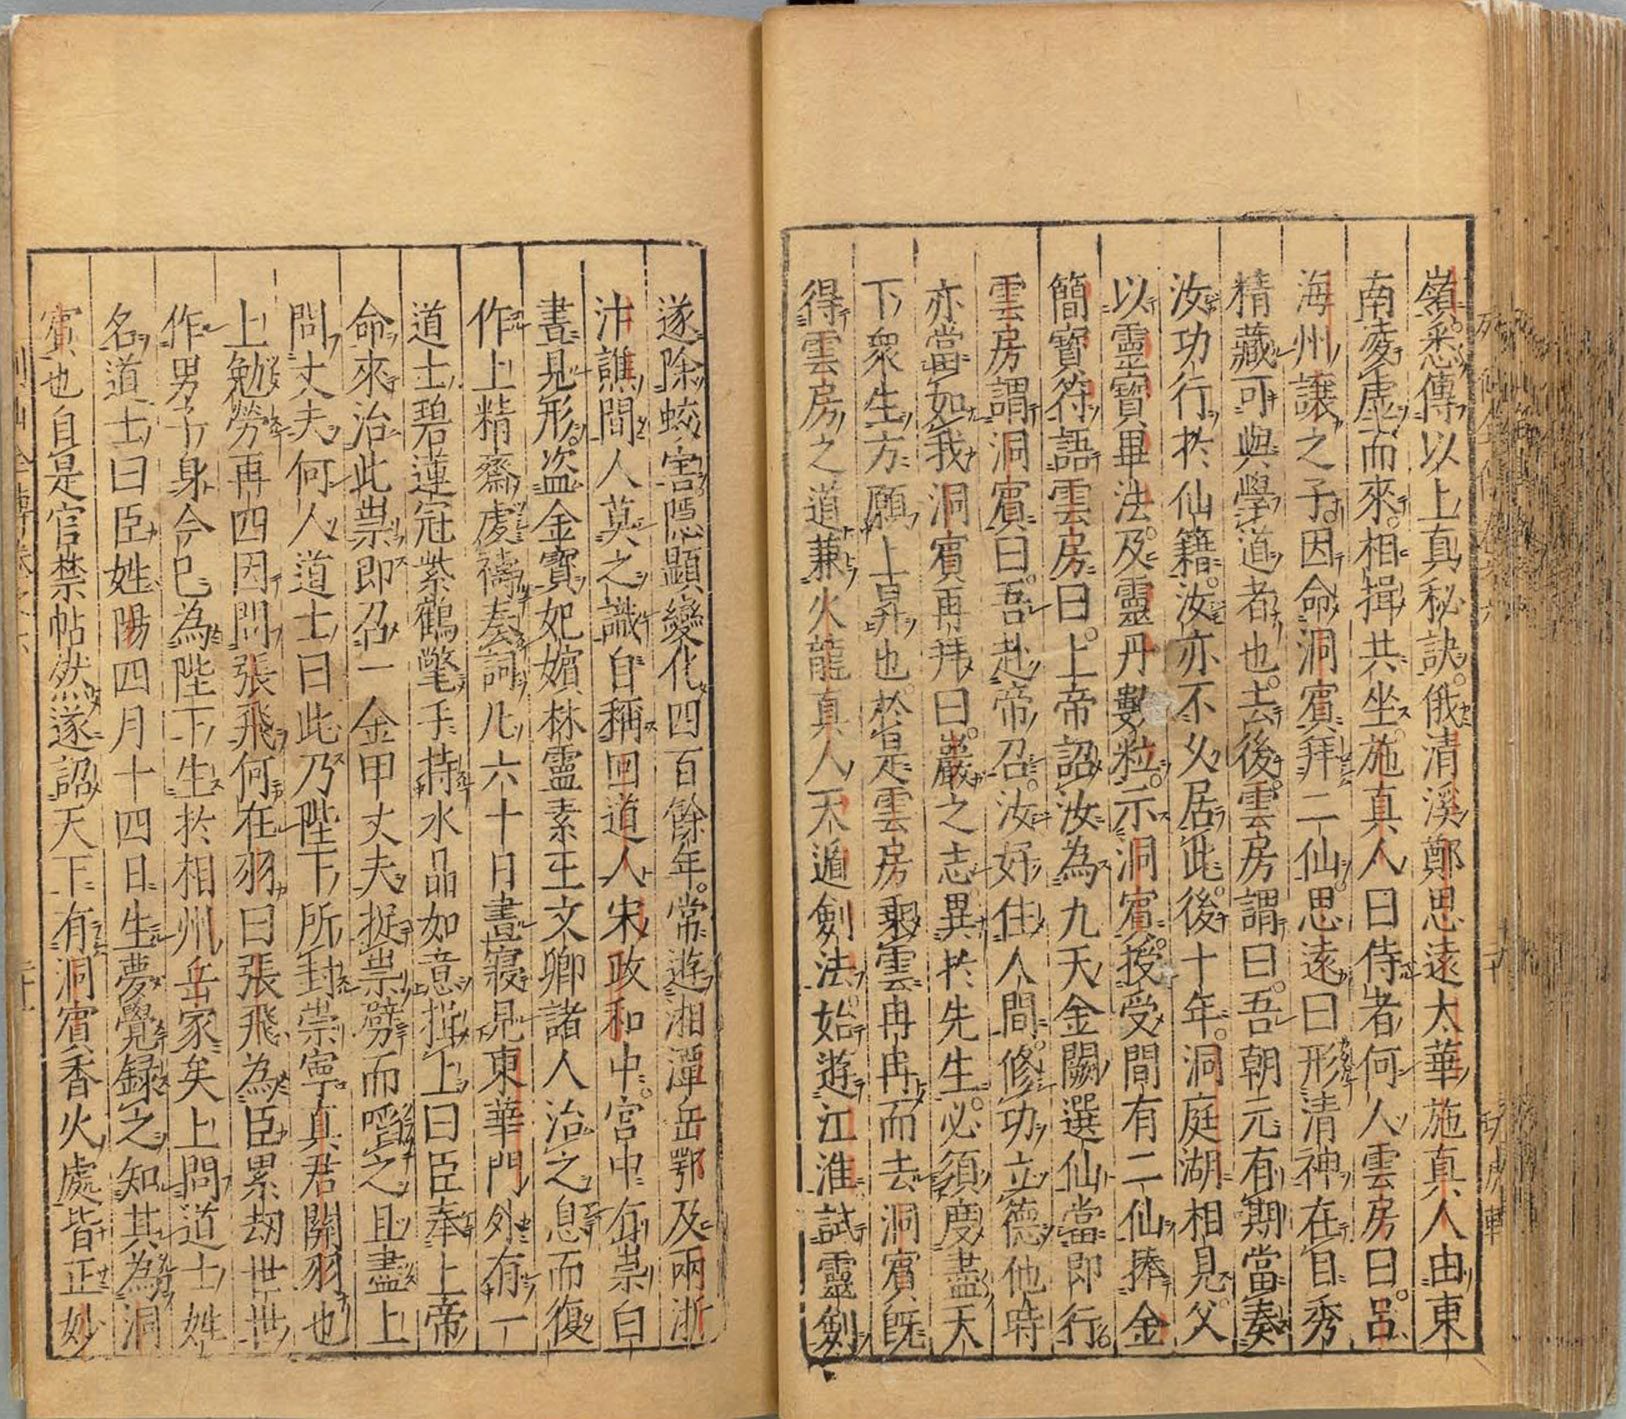 嶺悉傳以上真秘訣俄清溪鄭思遠太華施真人由東
南凌虛而來相揖共坐施真人曰侍者何人雲房曰呂
海州讓之子因命洞賓拜二仙思遠曰形清神在自秀
精藏可與學道者也去後雲房謂曰吾朝元有期當奏
汝功行於仙籍汝亦不久居此後十年洞庭湖相見父
以靈寶畢法及靈丹數粒示洞賓授受間有二仙捧金
簡寶符語雲房曰上帝詔汝為九天金闕選仙當即行
雲房謂洞賓曰吾赴帝召汝好住人間修功立德他時
亦當如我洞賓再拜曰巖之志異於先生必須度盡天
下眾生方願上昇也於是雲房乘雲冉冉而去洞賓既
得雲房之道兼火龍真人天遁劍法始遊江淮試靈劍
遂除蛟害隱顯變化四百餘年常遊湘潭岳鄂及兩浙
汴譙間人莫之識自稱回道人宋政和中宮中有祟白
晝見形盜金寶妃嬪林靈素王文卿諸人治之息而復
作上精齋虔禱奏詞凡六十日晝寢見東華門外有一
道士碧蓮冠紫鶴氅手持水晶如意揖上曰臣奉上帝
命來治此祟即召一金甲丈夫捉祟劈而啗之且盡上
問丈夫何人道士曰此乃陛下所封崇寧真君關羽也
上勉勞再四因問張飛何在羽曰張飛為臣累劫世世
作男子身今已為陛下生於相州岳家矣上問道士姓
名道士曰臣姓陽四月十四日生夢覺錄之知其為洞
賓也自是宮禁帖然遂詔天下有洞賓香火處皆正妙